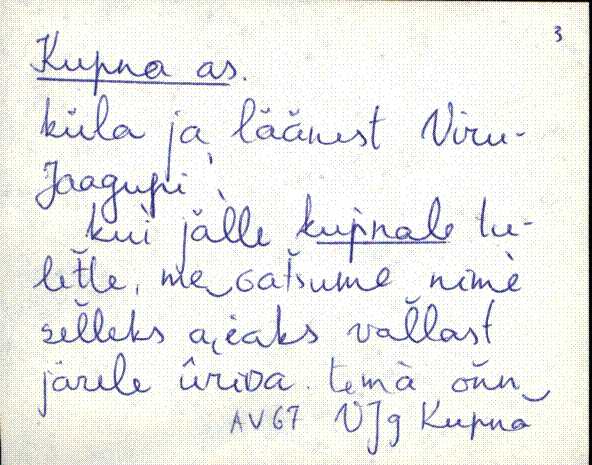 3
Kupna as.
küla ja läänest Viru-
Jaagupi
kui jälle kupnale tu-
letте, me
selleks ajaks vallast
järele ûrida. temà oǹn
AV67 VJg Kupna